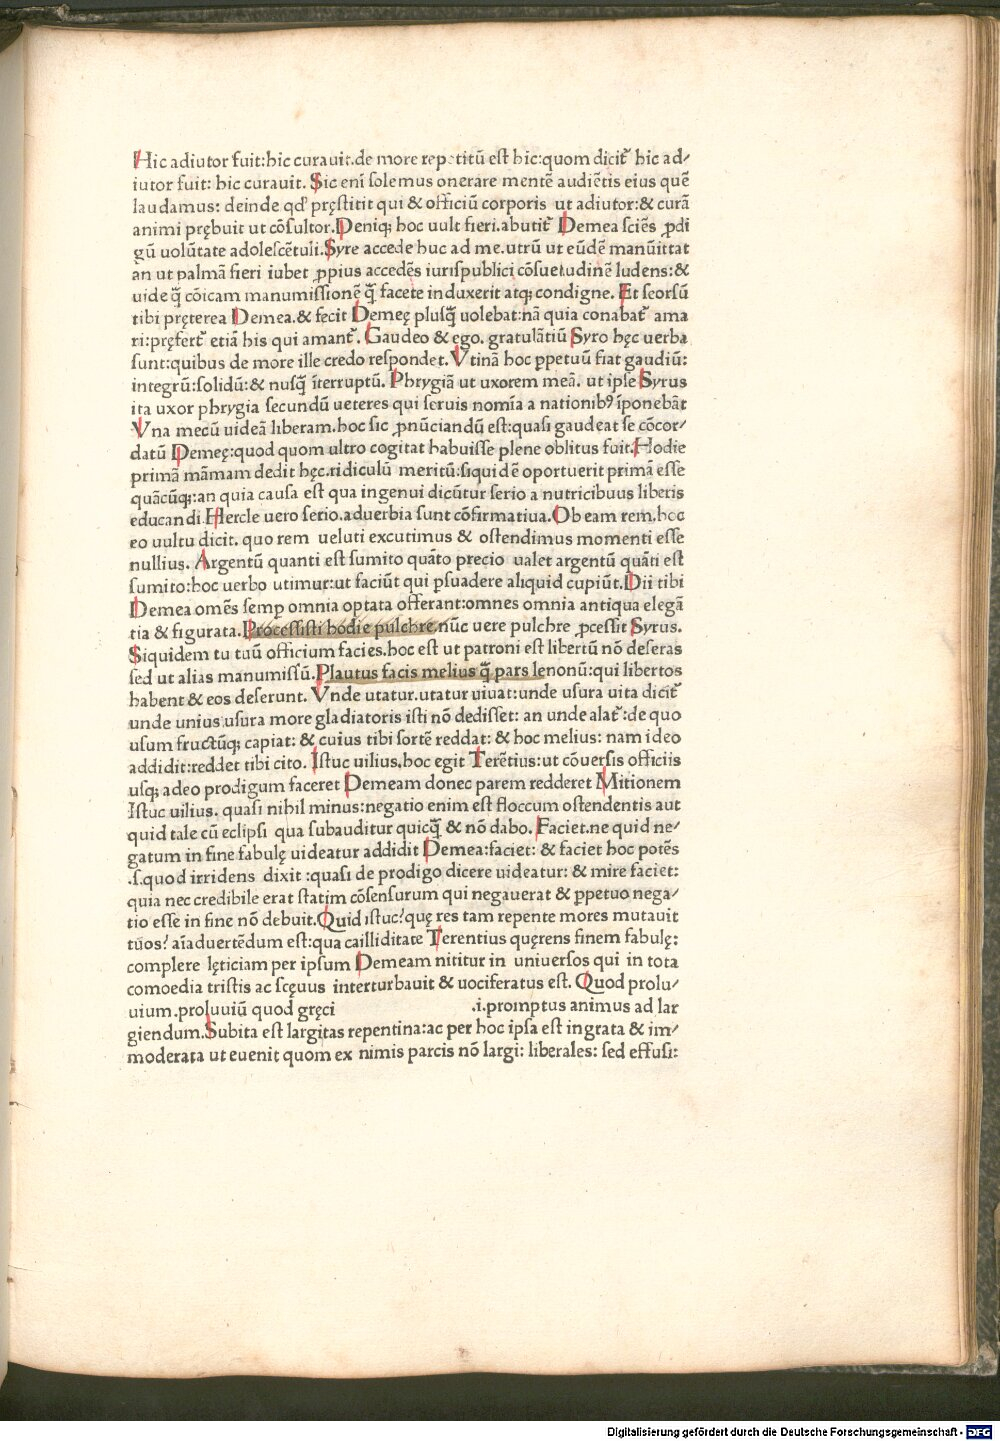 Hic adiutor fuit:hic curauit.de more repetitū est hic:quom dicit̃ hic ad/
iutor fuit: hic curauit. Sic eni solemus onerare mentē audiētis eius quē
laudamus: deinde qd' pręstitit qui & officiū corporis ut adiutor:& curā
animi prębuit ut cōsultor.Deniq; hoc uult fieri.abutit̃ Demea sciēs ꝓdi
gū uolūtate adolescētuli.Syre accede huc ad me.utrū ut eūdē manūittat
an ut palmā fieri iubet ꝓpius accedēs iurispublici cōsuetudinē ludens:&
uide q̄ cōicam manumissionē q̄ facete induxerit atq; condigne. Et seorsū
tibi pręterea Demea.& fecit Demeę plusq̄ uolebat:nā quia conabat̃ ama
ri:pręfert̃ etiā his qui amant̃. Gaudeo & ego. gratulātiū Syro hęc uerba
sunt:quibus de more ille credo respondet.Vtinā hoc ꝑpetuū fiat gaudiū:
integrū:solidū:& nusq̄ īterruptū. Phrygiā ut uxorem meā. ut ipse Syrus
ita uxor phrygia secundū ueteres qui seruis nomīa a nationibꝰ īponebāt
Vna mecū uideā liberam.hoc sic ꝓnūciandū est:quasi gaudeat se cōcor/
datū Demeę:quod quom ultro cogitat habuisse plene oblitus fuit.Hodie
primā māmam dedit hęc.ridiculū meritū:siquidē oportuerit primā esse
quācūq;:an quia causa est qua ingenui dicūtur serio a nutricibuus liberis
educandi.Hercle uero serio.aduerbia sunt cōfirmatiua.Ob eam rem.hoc
eo uultu dicit. quo rem ueluti excutimus & ostendimus momenti esse
nullius. Argentū quanti est sumito quāto precio ualet argentū quāti est
sumito:hoc uerbo utimur:ut faciūt qui ꝑsuadere aliquid cupiūt.Dii tibi
Demea omēs semꝑ omnia optata offerant:omnes omnia antiqua elegā
tia & figurata.Processisti hodie pulchre.nūc uere pulchre ꝓcessit Syrus.
Siquidem tu tuū officium facies.hoc est ut patroni est libertū nō deseras
sed ut alias manumissū.Plautus facis melius q̄ pars lenonū:qui libertos
habent & eos deserunt. Vnde utatur.utatur uiuat:unde usura uita dicit̃
unde unius usura more gladiatoris isti nō dedisset: an unde alat̃:de quo
usum fructūq; capiat: & cuius tibi sortē reddat: & hoc melius: nam ideo
addidit:reddet tibi cito. Istuc uilius.hoc egit Terētius:ut cōuersis officiis
usq; adeo prodigum faceret Demeam donec parem redderet Mitionem
Istuc uilius. quasi nihil minus:negatio enim est floccum ostendentis aut
quid tale cū eclipsi qua subauditur quicq̄ & nō dabo. Faciet.ne quid ne/
gatum in fine fabulę uideatur addidit Demea:faciet: & faciet hoc potēs
.s.quod irridens dixit :quasi de prodigo dicere uideatur: & mire faciet:
quia nec credibile erat statim cōsensurum qui negauerat & ꝑpetuo nega/
tio esse in fine nō debuit.Quid istuc?quę res tam repente mores mutauit
tuos? aīaduertēdum est:qua cailliditate Terentius quęrens finem fabulę:
complere lęticiam per ipsum Demeam nititur in uniuersos qui in tota
comoedia tristis ac scęuus interturbauit & uociferatus est. Quod prolu/
uium.proluuiū quod gręci .i.promptus animus ad lar
giendum.Subita est largitas repentina:ac per hoc ipsa est ingrata & im/
moderata ut euenit quom ex nimis parcis nō largi: liberales: sed effusi:
Digitalisierung gefördert durch die Deutsche Forschungsgemeinschaft - DFG